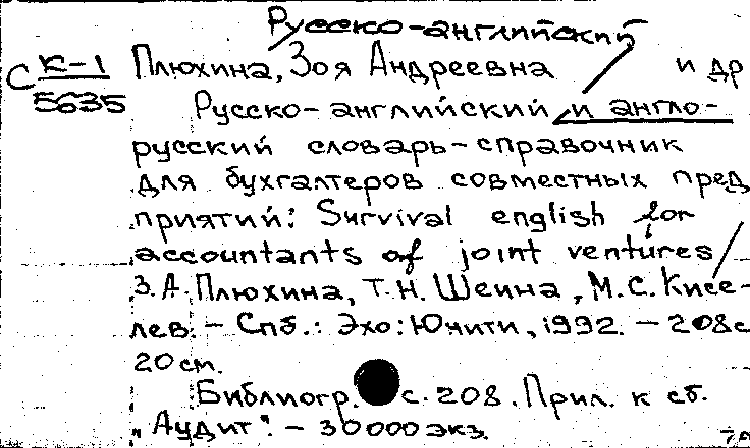 Русско-английский
С К-1 Плюхина, Зоя Андреевна и др
5635 Русско-английский и англо-
русский словарь-справочник
для бухгалтеров совместных пред
приятий: Survival english for
accountants of joint ventures/
З.А. Плюхина, Т.Н. Шеина, М.С. Кисе-
лев. – Спб.: Эхо: Юнити, 1992. – 208с
20 см.
Библиогр. с. 208. Прил. к сб.
"Аудит". – 30000 экз.